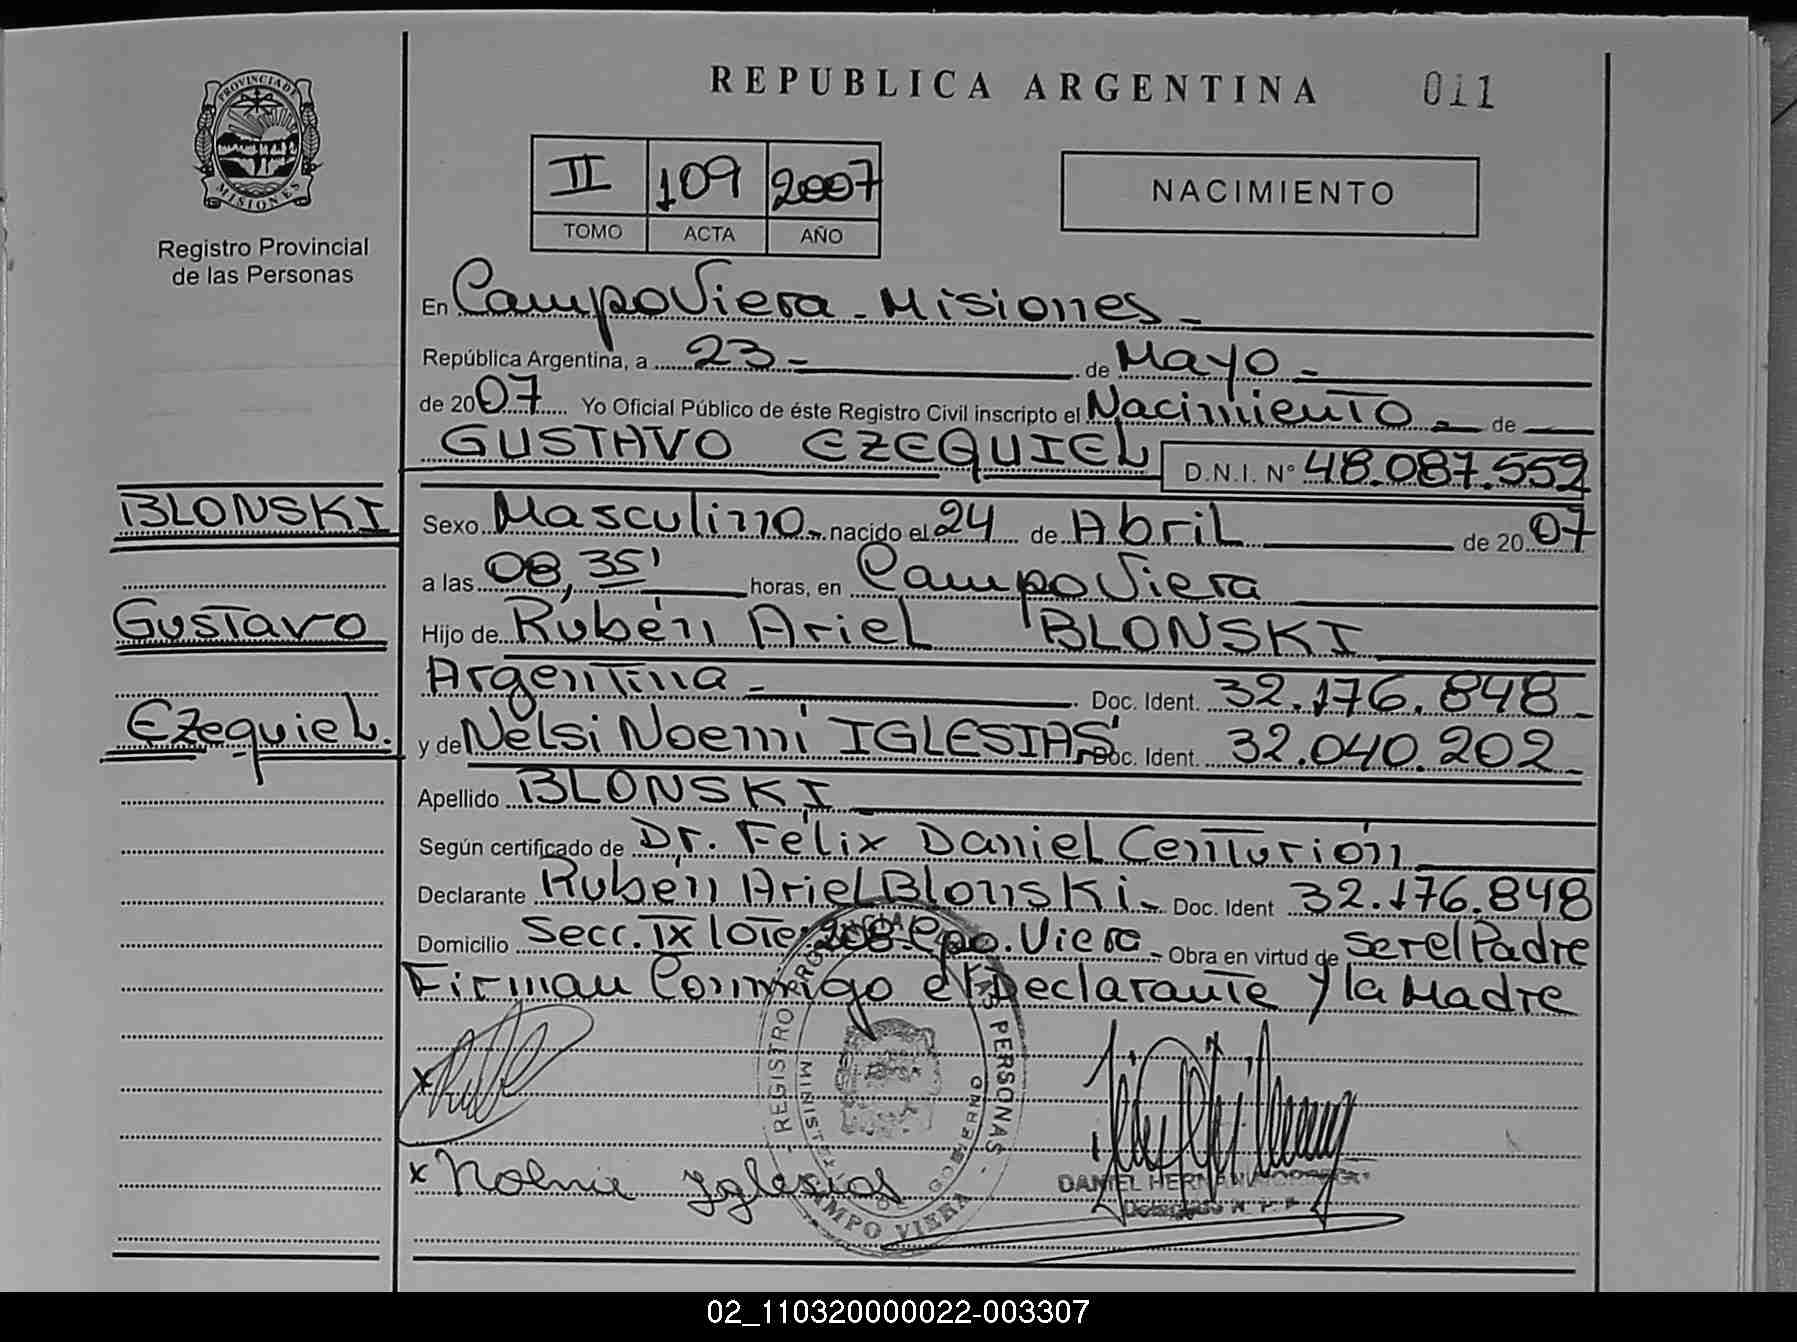 REPUBLICA ARGENTINA 011
PROVINCIA DE
MISIONES
Registro Provincial
de las Personas
II 109 2007
TOMO ACTA AÑO
NACIMIENTO
En Campo Viera - Misiones -
República Argentina, a 23 - de Mayo -
de 2007 Yo Oficial Público de éste Registro Civil inscripto el Nacimiento - de
GUSTAVO EZEQUIEL D.N.I. N° 48.087.552
BLONSKI
Gustavo
Ezequiel.
Sexo Masculino - nacido el 24 de Abril de 2007
a las 08,35' horas, en Campo Viera
Hijo de Rubén Ariel BLONSKI
Argentina - Doc. Ident. 32.176.848 -
y de Nélsi Noemí IGLESIAS - Doc. Ident. 32.040.202
Apellido BLONSKI
Según certificado de Dr. Félix Daniel Centurión
Declarante Rubén Ariel Blonski - Doc. Ident 32.176.848
Domicilio Secc. IX lote 208 - Cpo. Viera - Obra en virtud de ser el Padre
Firman Conmigo el Declarante y la Madre
x
x Noemi Iglesias
REGISTRO PERSONAS
MINISTERIO GOBIERNO
CAMPO VIERA
DANIEL HERNAN
02_110320000022-003307